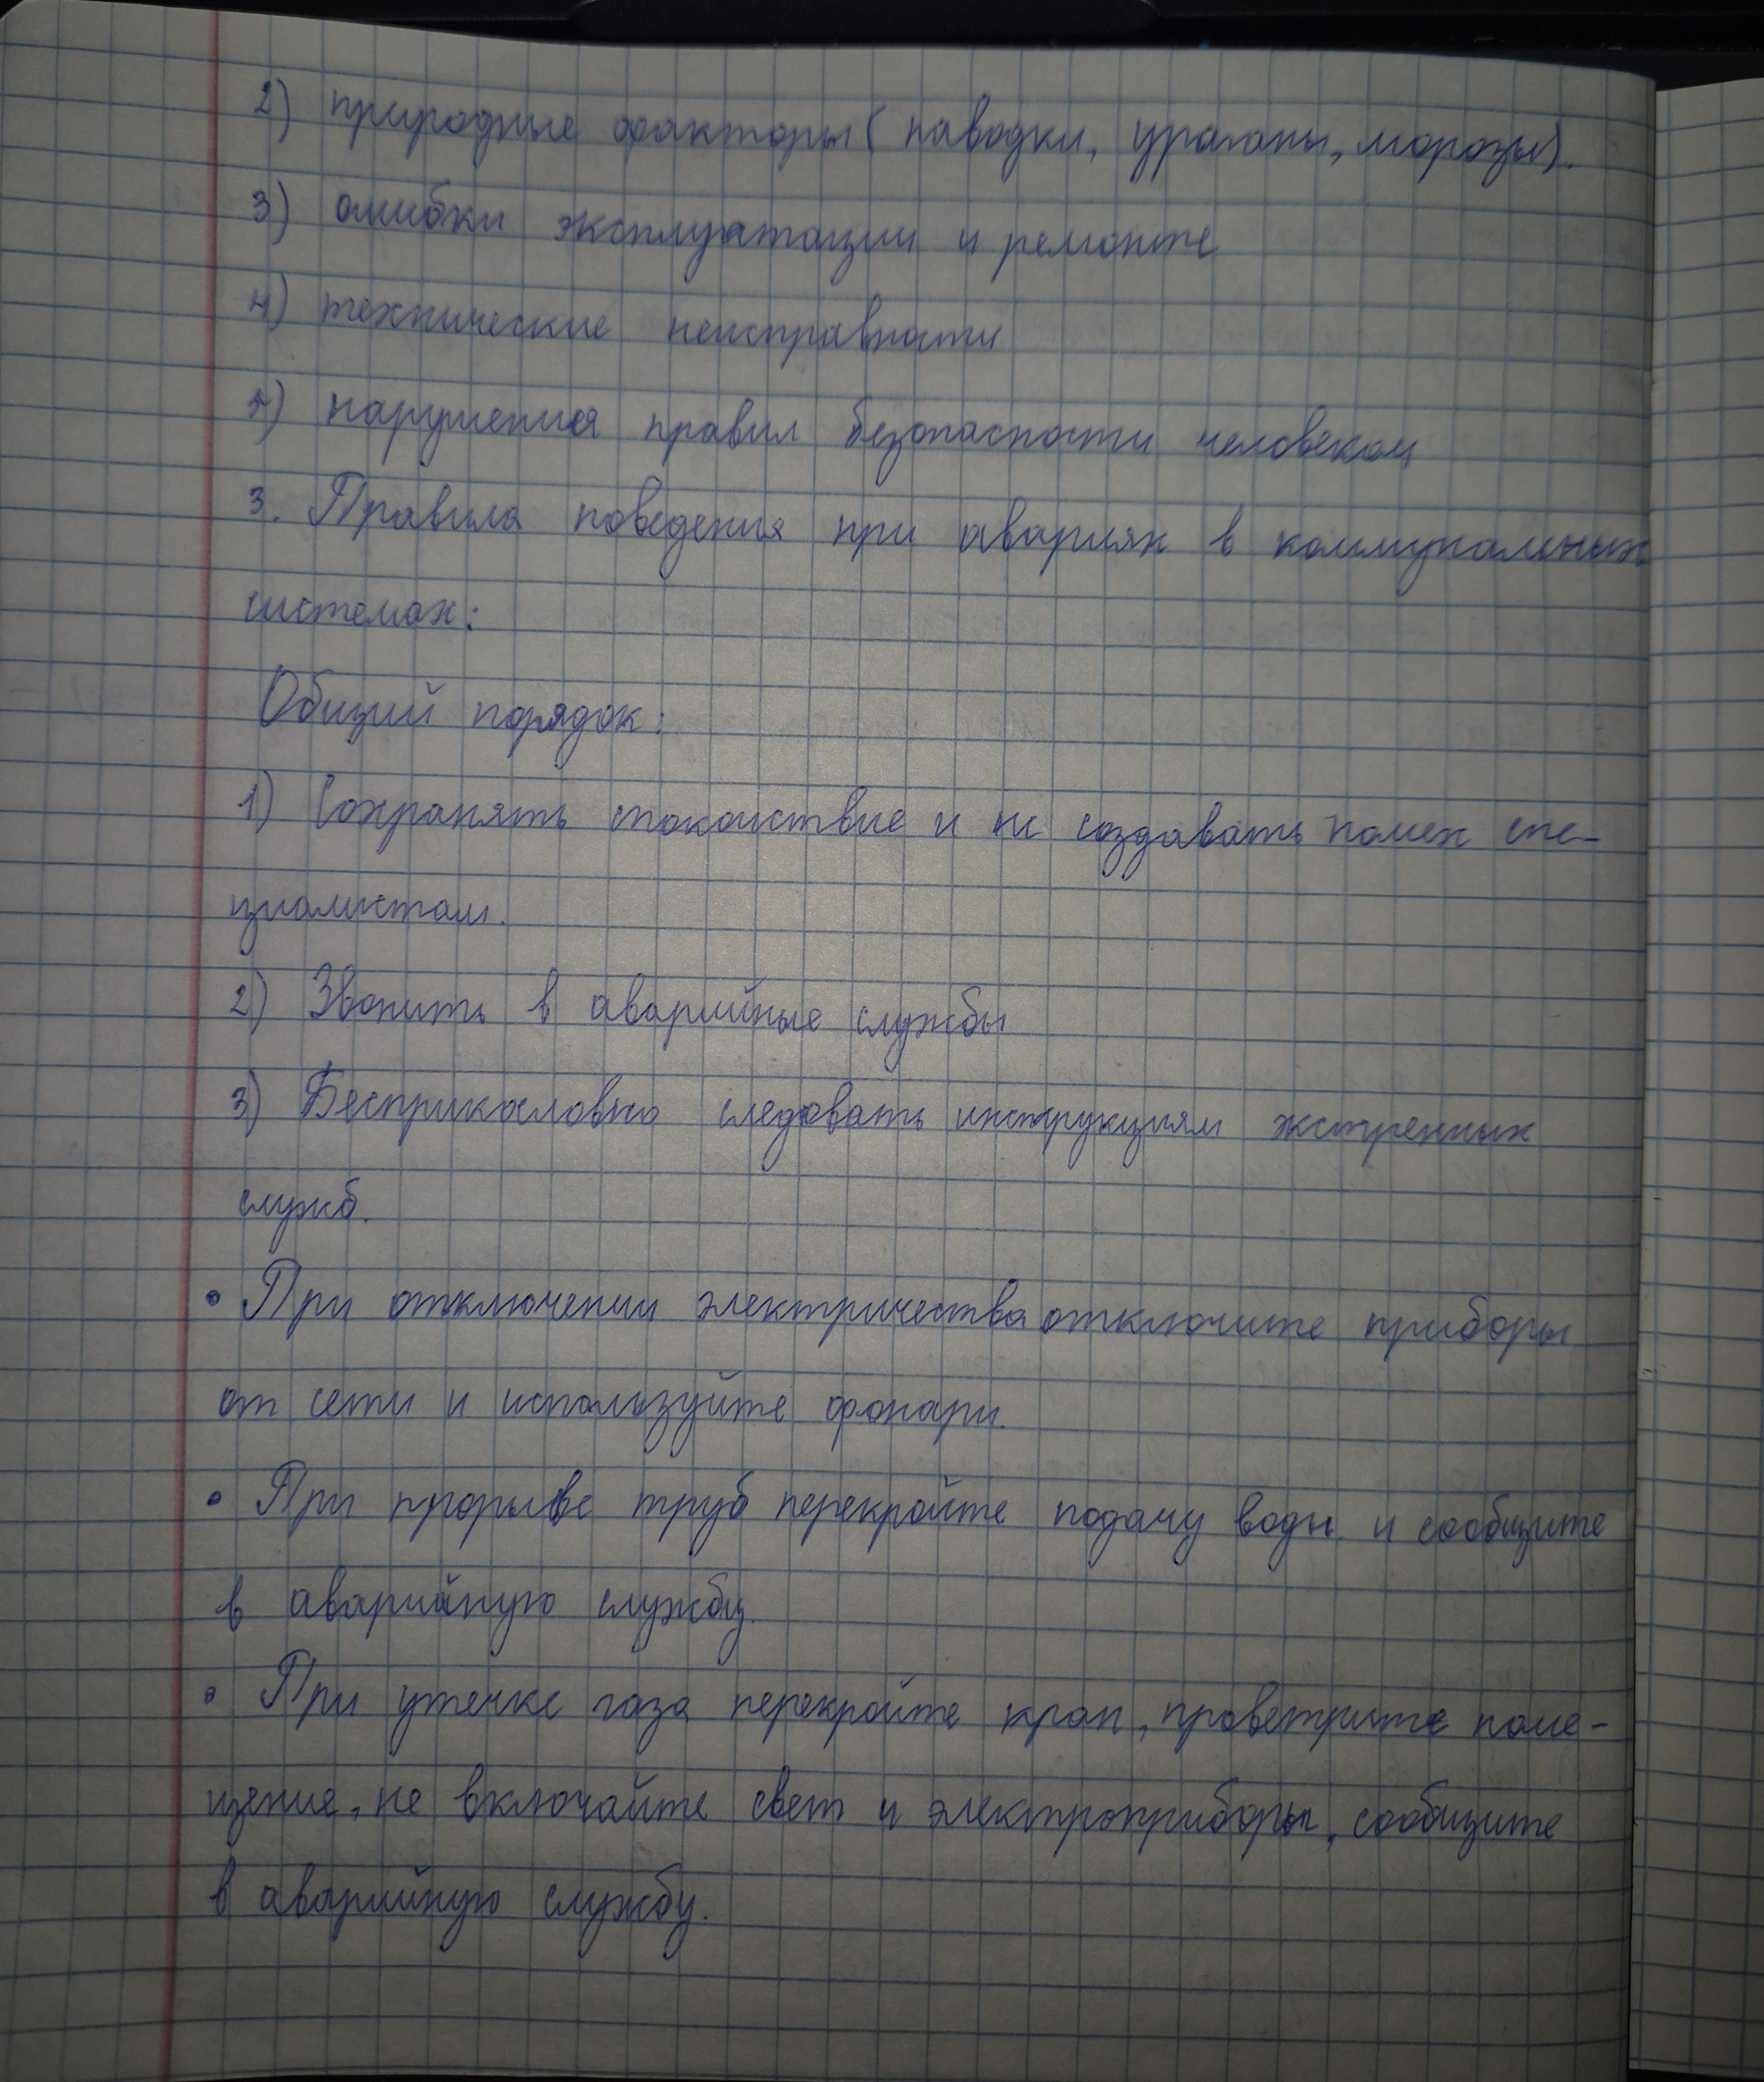 2) природные факторы( паводки, ураганы, морозы).
3) ошибки эксплуатации и ремонте
4) технические неисправности
5) нарушения правил безопасности человеком
3. Правила поведения при авариях в коммунальных
системах:
Общий порядок:
1) Сохранять спокойствие и не создавать помех спе-
циалистам.
2) Звонить в аварийные службы
3) Бесприкословно следовать инструкциям экстренных
служб.
• При отключении электричества отключите приборы
от сети и используйте фонари.
• При прорыве труб перекройте подачу воды и сообщите
в аварийную службу.
• При утечке газа перекройте кран, проветрите поме-
щение, не включайте свет и электроприборы, сообщите
в аварийную службу.